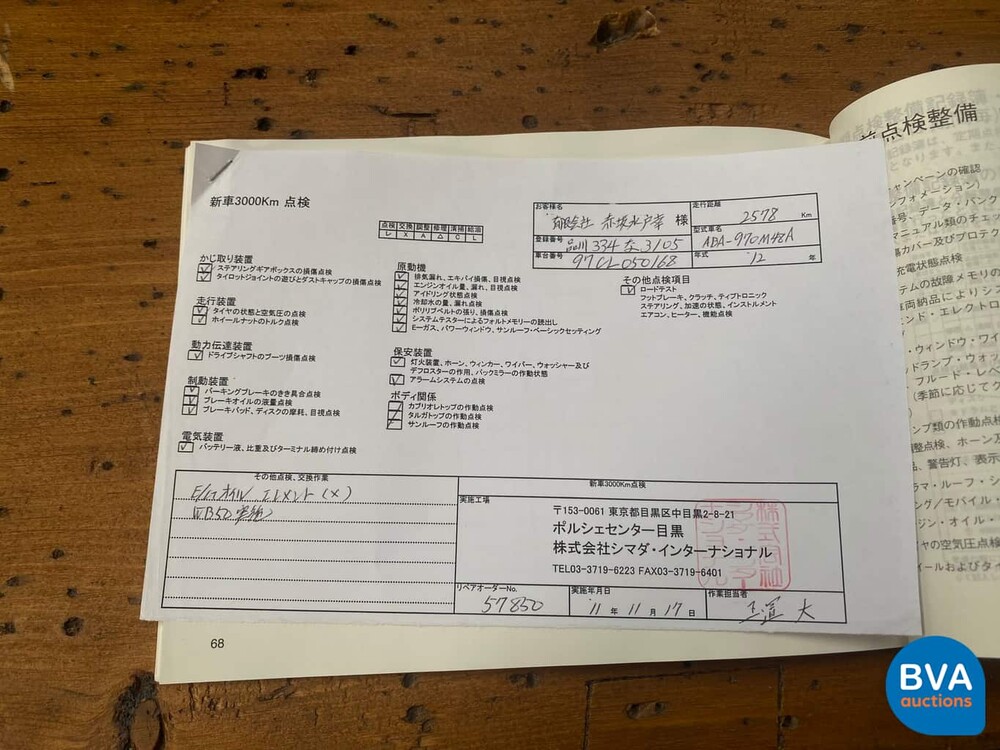 新車3000Km 点検
点検 交換 調整 修理 清掃 給油
レ X A △ C L
お客様名
有限会社 赤坂水戸幸 様
走行距離
2578 Km
登録番号
品川 334 な 3105
型式車名
ABA-970M48A
車台番号
97CL050168
年式
'12 年
かじ取り装置
ステアリングギアボックスの損傷点検
タイロットジョイントの遊びとダストキャップの損傷点検
走行装置
タイヤの状態と空気圧の点検
ホイールナットのトルク点検
動力伝達装置
ドライブシャフトのブーツ損傷点検
制動装置
パーキングブレーキのきき具合点検
ブレーキオイルの液量点検
ブレーキパッド、ディスクの摩耗、目視点検
電気装置
バッテリー液、比重及びターミナル締め付け点検
原動機
排気漏れ、エキパイ損傷、目視点検
エンジンオイル量、漏れ、目視点検
アイドリング状態点検
冷却水の量、漏れ点検
ポリリブベルトの張り、損傷点検
システムテスターによるフォルトメモリーの読出し
Eーガス、パワーウィンドウ、サンルーフ・ベーシックセッティング
保安装置
灯火装置、ホーン、ウィンカー、ワイパー、ウォッシャー及び
デフロスターの作用、バックミラーの作動状態
アラームシステムの点検
ボディ関係
カブリオレトップの作動点検
タルガトップの作動点検
サンルーフの作動点検
その他点検項目
ロードテスト
フットブレーキ、クラッチ、ティプトロニック
ステアリング、加速の状態、インストルメント
エアコン、ヒーター、機能点検
その他点検、交換作業
E/Gオイル エレメント (X)
WB50 実施
新車3000Km点検
実施工場
〒153-0061 東京都目黒区中目黒2-8-21
ポルシェセンター目黒
株式会社シマダ・インターナショナル
TEL03-3719-6223 FAX03-3719-6401
リペアオーダーNo.
57850
実施年月日
'11 年 11 月 17 日
作業担当者
大
68
点検整備
キャンペーンの確認
フォメーション)
番号、データ・バンク
マニュアル類のチェッ
充電状態点検
テムの故障メモリの
車両納品によりシ
エンド・エレクトロ
ウィンドウ・ワイ
ドランプ・ウォッ
フルード・レベ
(季節に応じてク
ンプ類の作動点検
調整点検、ホーン及
品、警告灯、表示
ラマ・ルーフ・シ
ング/モバイル・
ジン・オイル・
ヤの空気圧点検
ールおよびタイ
BVA
auctions